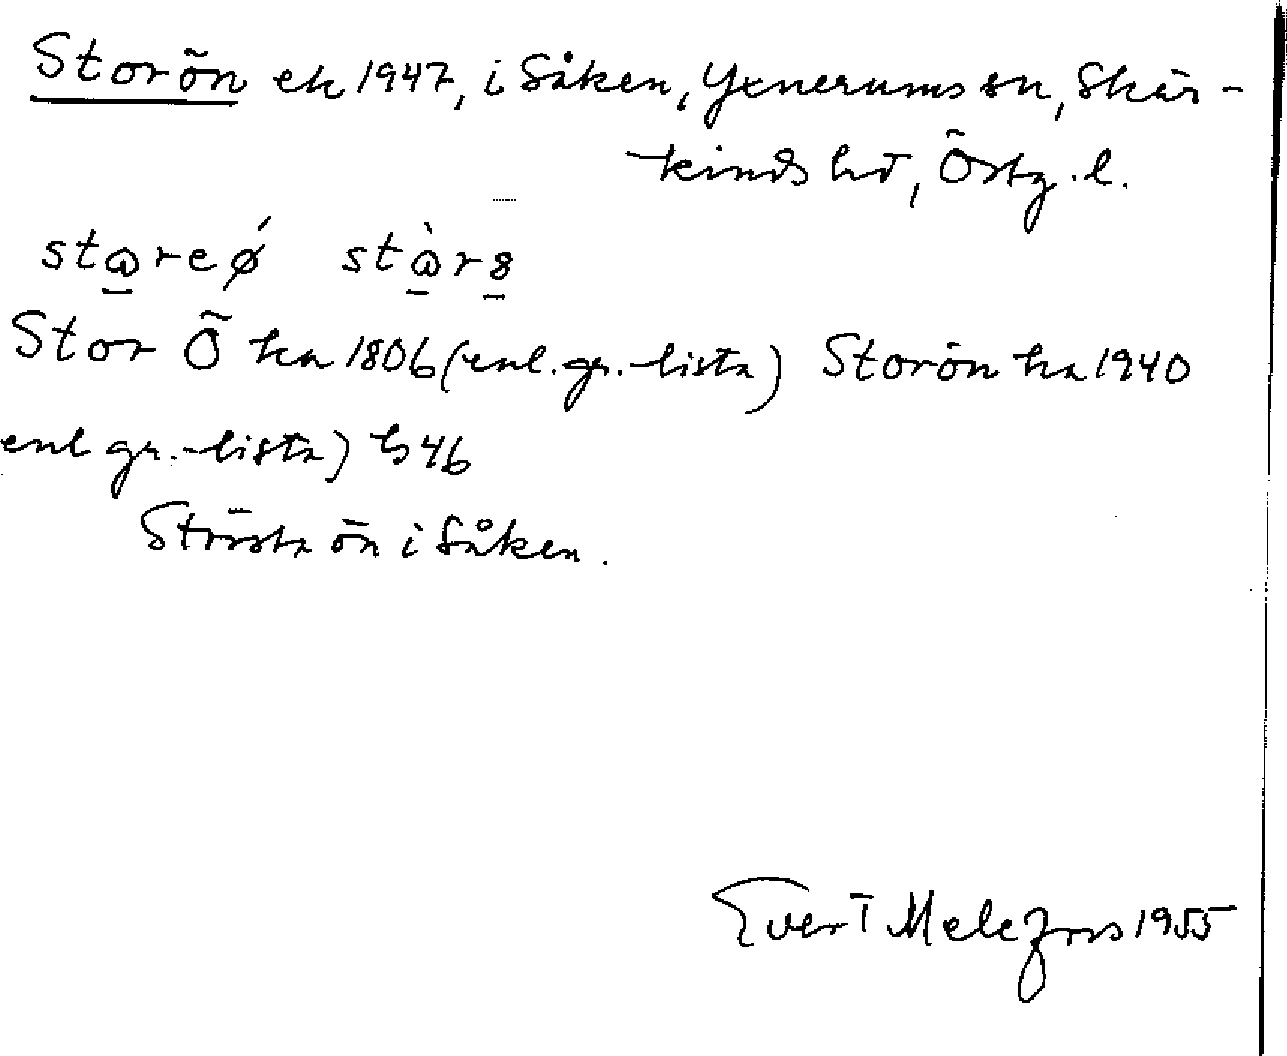 Storön ek 1947, i Såken, Yxnerums sn, Skär-
kinds hd, Östg. l.
Stor Ö ka 1806 (enl. gr.-lista) Storön ka 1940
enl gr.-lista) b 46
Största ön i Såken.
Evert Melefors 1955